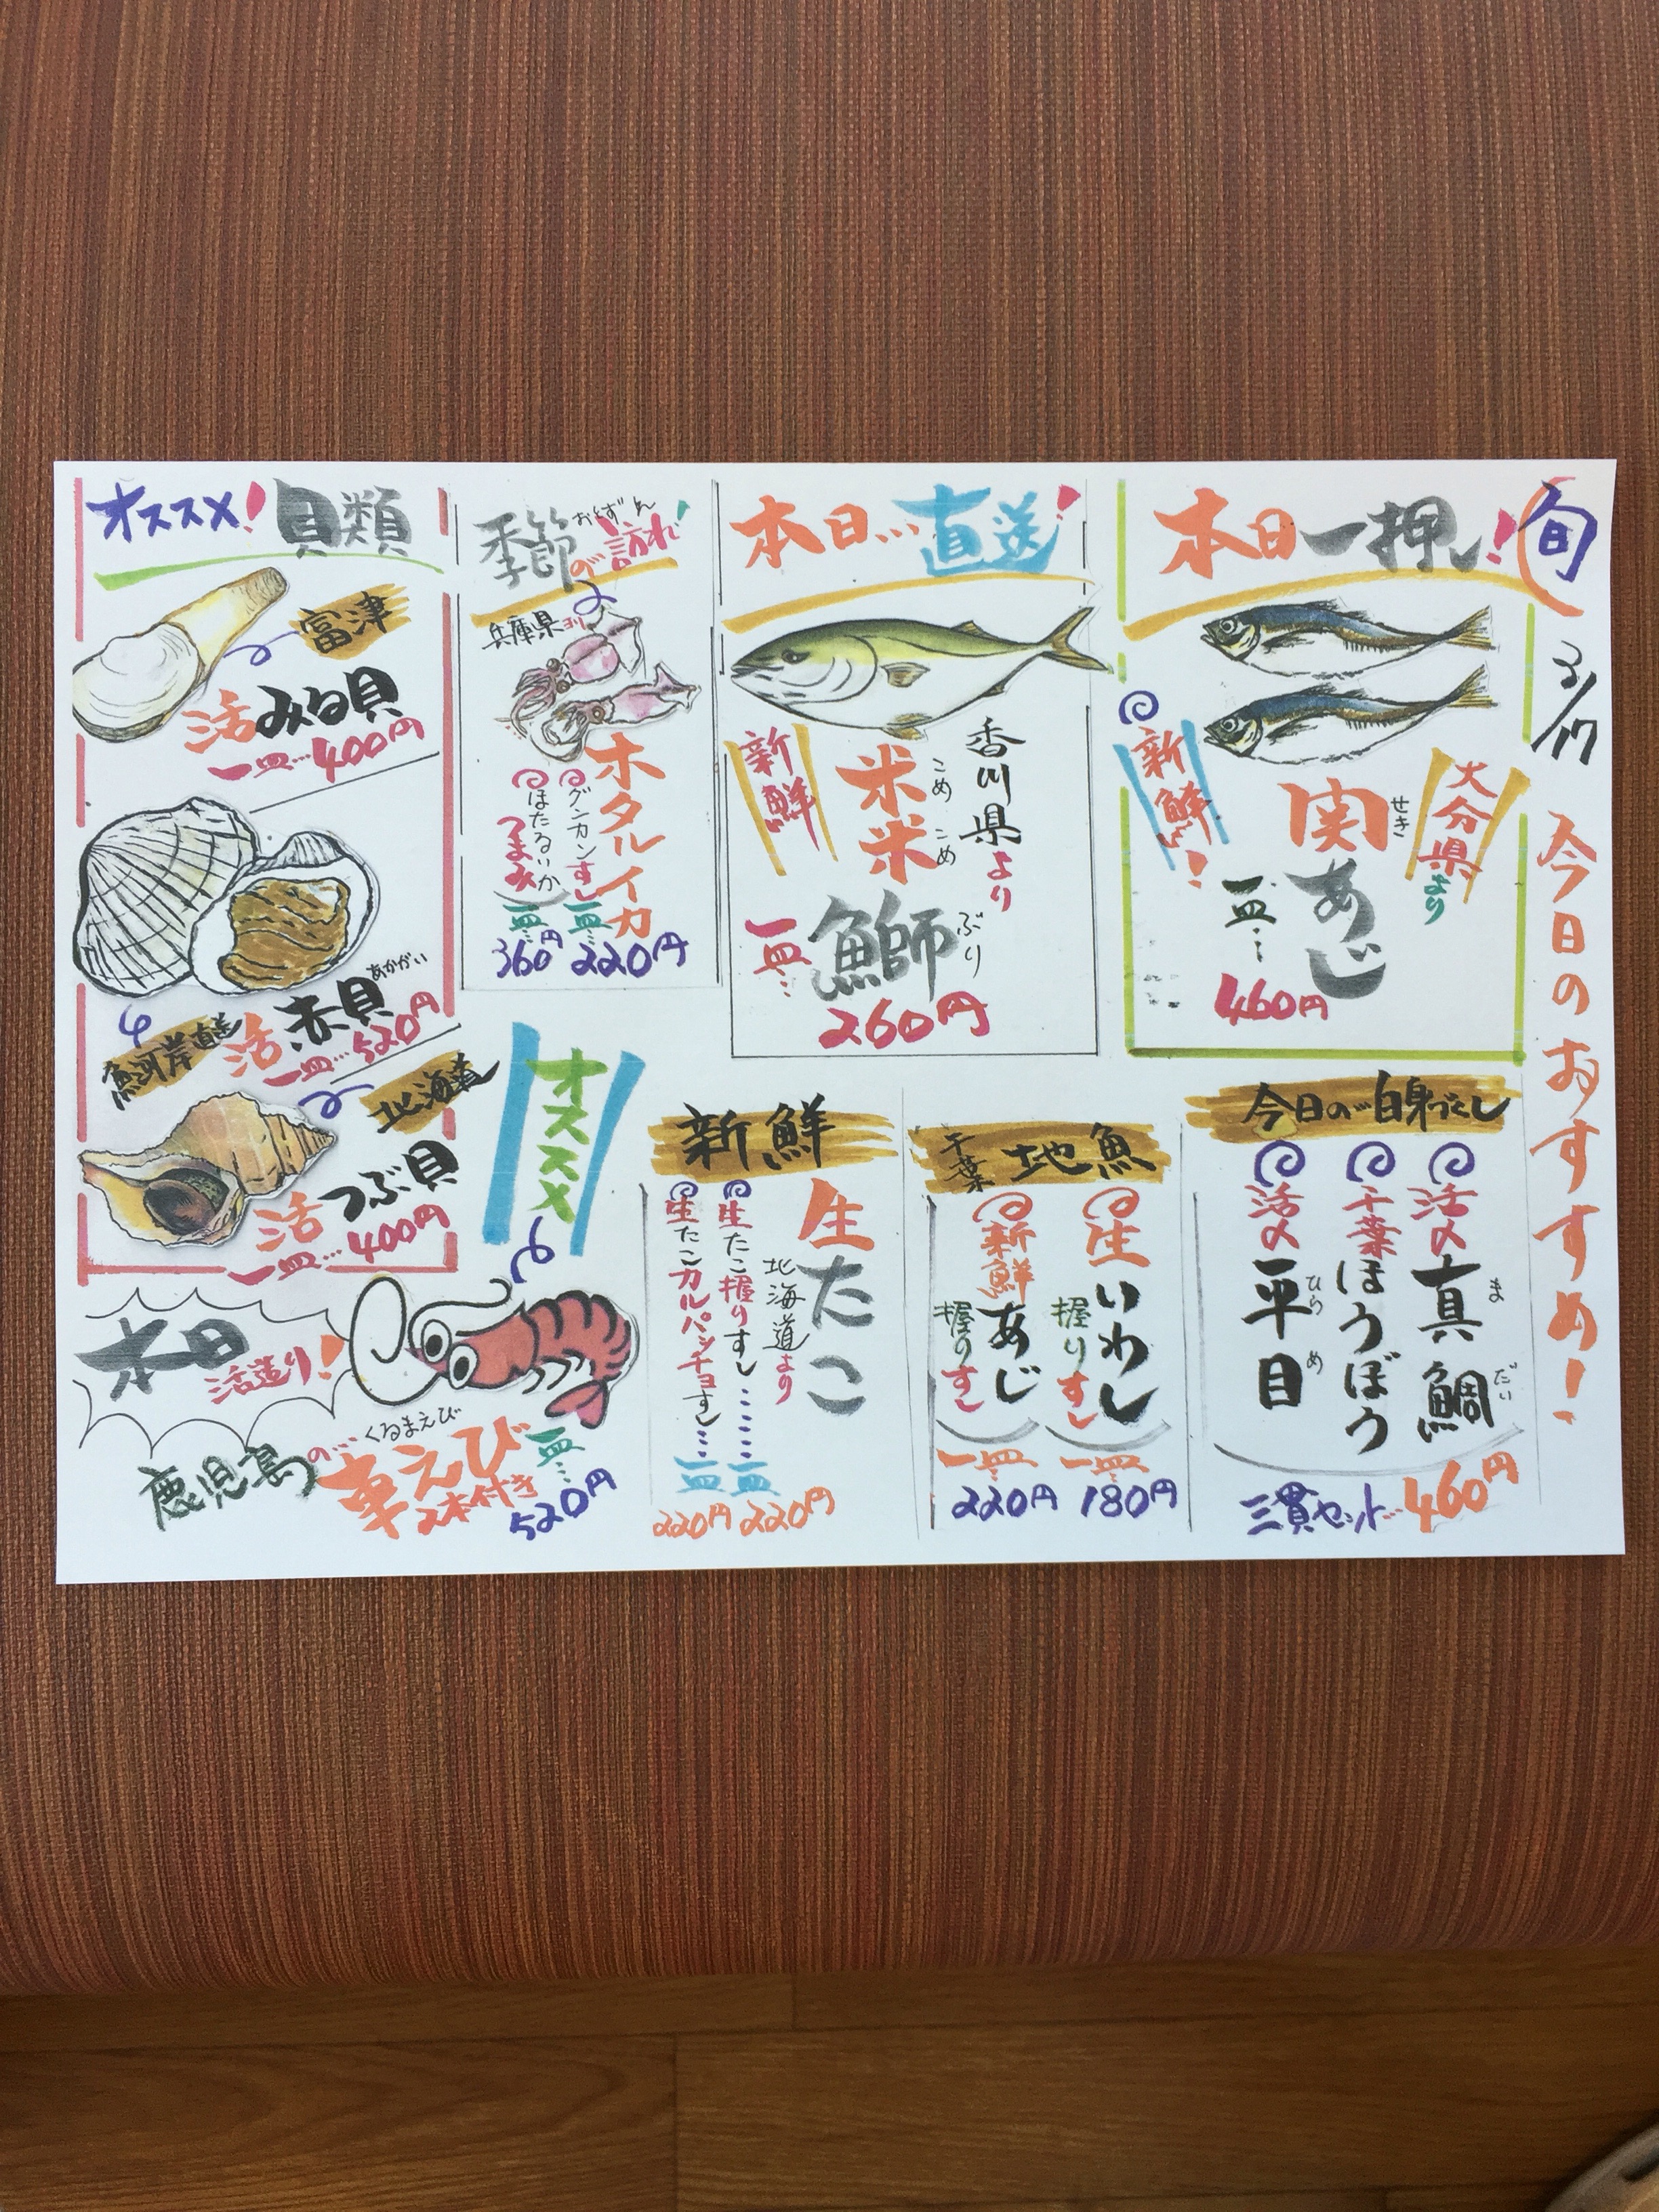 旬
3/17
今日のおすすめ！
本日一押し！
大分県より
関あじ
せき
新鮮！
一皿…
460円
本日…直送！
香川県より
米米鰤
こめこめぶり
新鮮
一皿…
260円
季節の訪れ！
おとずれ
兵庫県ヨリ
ホタルイカ
グンカンすし
一皿…
220円
ほたるいか
つまみ
一皿…
360円
オススメ！貝類
富津
活みる貝
一皿…400円
あかがい
活赤貝
魚河岸直送
一皿…520円
北海道
活つぶ貝
一皿…400円
今日の白身づくし
活〆真鯛
まだい
千葉ほうぼう
活〆平目
ひらめ
三貫セット…460円
千葉地魚
生いわし
握りすし
一皿…
180円
新鮮あじ
握りすし
一皿…
220円
新鮮
生たこ
北海道より
生たこ握りすし……
一皿
220円
生たこカルパッチョすし…
一皿
220円
オススメ
本日活造り！
鹿児島の…
くるまえび
車えび
2本付き
一皿…
520円